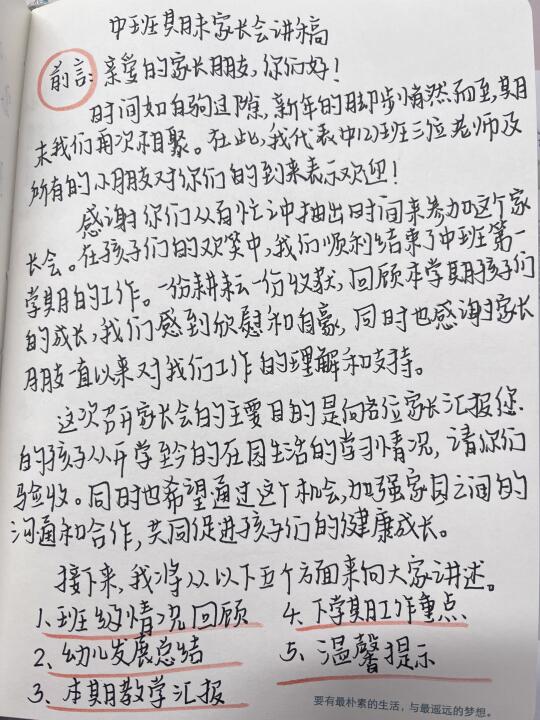 中班期末家长会讲稿
前言：亲爱的家长朋友，你们好！
时间如白驹过隙，新年的脚步悄然而至，期
末我们再次相聚。在此，我代表中(2)班三位老师及
所有的小朋友对你们的到来表示欢迎！
感谢你们从百忙之中抽出时间来参加这个家
长会。在孩子们的欢笑中，我们顺利结束了中班第一
学期的工作。一份耕耘一份收获，回顾本学期孩子们
的成长，我们感到欣慰和自豪，同时也感谢家长
朋友一直以来对我们工作的理解和支持。
这次召开家长会的主要目的是向各位家长汇报您
的孩子从开学至今的在园生活的学习情况，请你们
验收。同时也希望通过这个机会，加强家园之间的
沟通和合作，共同促进孩子们的健康成长。
接下来，我将从以下五个方面来向大家讲述。
1、班级情况回顾
2、幼儿发展总结
3、本期教学汇报
4、下学期工作重点
5、温馨提示
要有最朴素的生活，与最遥远的梦想。